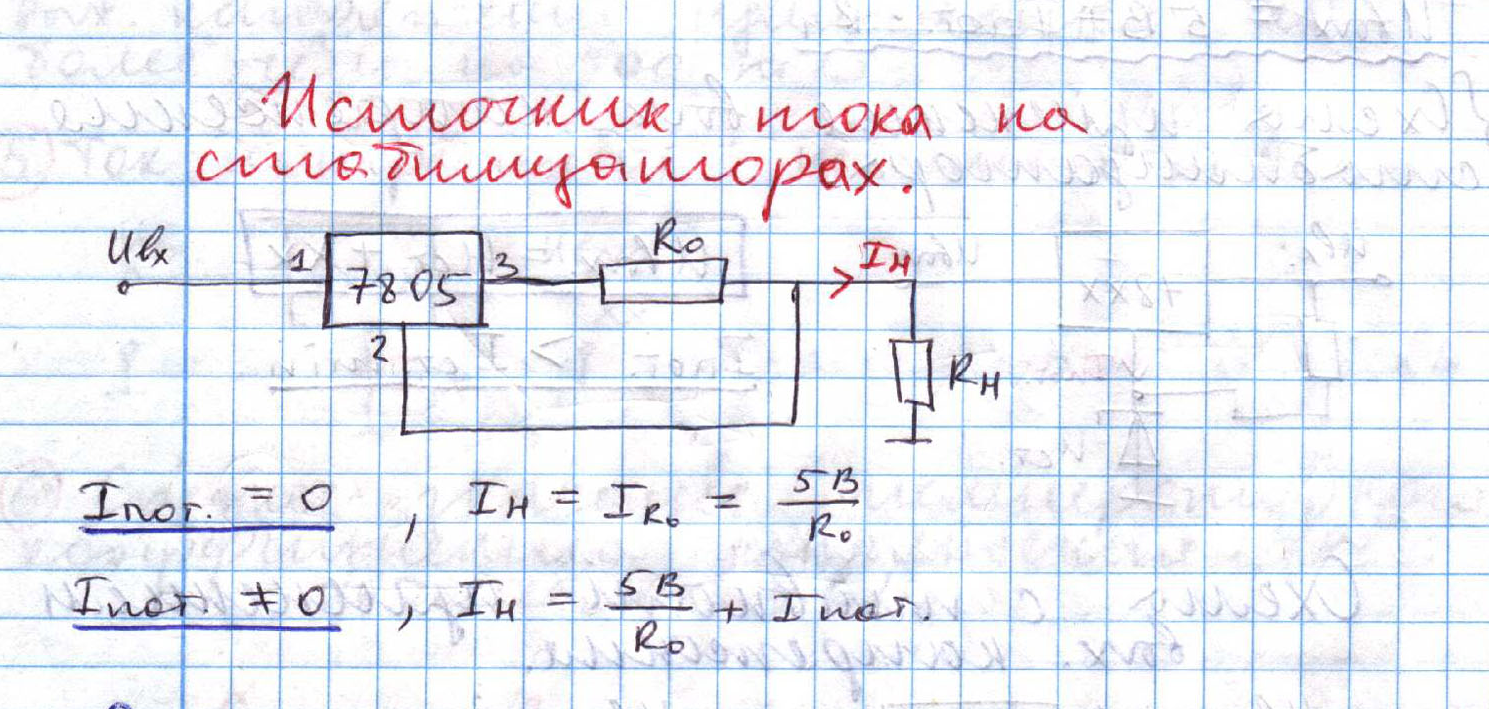 Источник тока на
стабилизаторах.
Uвх
1
7805
3
R₀
Iн
2
Rн
Iпот. = 0 , Iн = I_R₀ = 5В/R₀
Iпот. ≠ 0 , Iн = 5В/R₀ + Iпот.